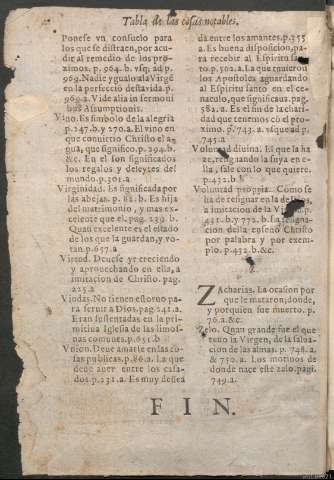 Tabla de las cosas notables.
Ponese vn consuelo para
los que se distraen, por acu-
dir al remedio de los pro-
ximos. p. 964. b. vsq; ad p.
969. Nadie yguaio a la Virgē
en la perfecciō desta vida. p.
969. a. Vide alia in sermoni
bus Assumptionis.
Vino. Es simbolo de la alegria
p. 247. b. y 270. a. El vino en
que conuirtio Christo el a-
gua, que significo. p. 394. b.
&c. En el son significados
los regalos y deleytes del
mundo. p. 301. a.
Virginidad. Es significada por
las abejas. p. 82. b. Es hija
del matrimonio, y mas ex-
celente que el. pag. 239 b.
Quan excelente es el estado
de los que la guardan, y vo-
tan. p. 657. a
Virtud. Deuese yr creciendo
y aprouechando en ella, a
imitacion de Christo. pag.
225. a
Viudas. No tienen estoruo pa-
ra seruir a Dios. pag. 241. a.
Eran sustentadas en la pri-
mitiua Iglesia de las limos-
nas comunes. p. 651. b
Vnion. Deue amarse en las co-
sas publicas. p. 86. a. La que
deue auer entre los casa-
dos. p. 231. a. Es muy dessea
da entre los amantes. p. 355
a. Es buena disposicion, pa-
ra recebir al Espiritu san-
to. p. 502. a. La que tuuieron
los Apostoles aguardando
al Espiritu santo en el ce-
naculo, que significaua. pag.
582. a. Es el fin de la chari-
dad que tenemos cō el pro-
ximo. p. 743. a. vsque ad p.
745. a
Voluntad diuina. El que la ha
ze, resignando la suya en e-
lla, sale con lo que quiere.
p. 432. b.
Voluntad propria. Como se
ha de resignar en la de Dios, a
imitacion de la
431. b. y 773. b. La resigna-
cion della enseño Christo
por palabra y por exem-
plo. p. 432. b. &c.
Z
Zacharias. La ocasion por
que le mataron, donde,
y porquien fue muerto. p.
76. a. &c.
Zelo. Quan grande fue el que
tuuo la Virgen, de la salua-
cion de las almas. p. 748. a.
& 750. a. Los motiuos de
donde nace este zelo. pagi.
749. a.
FIN.